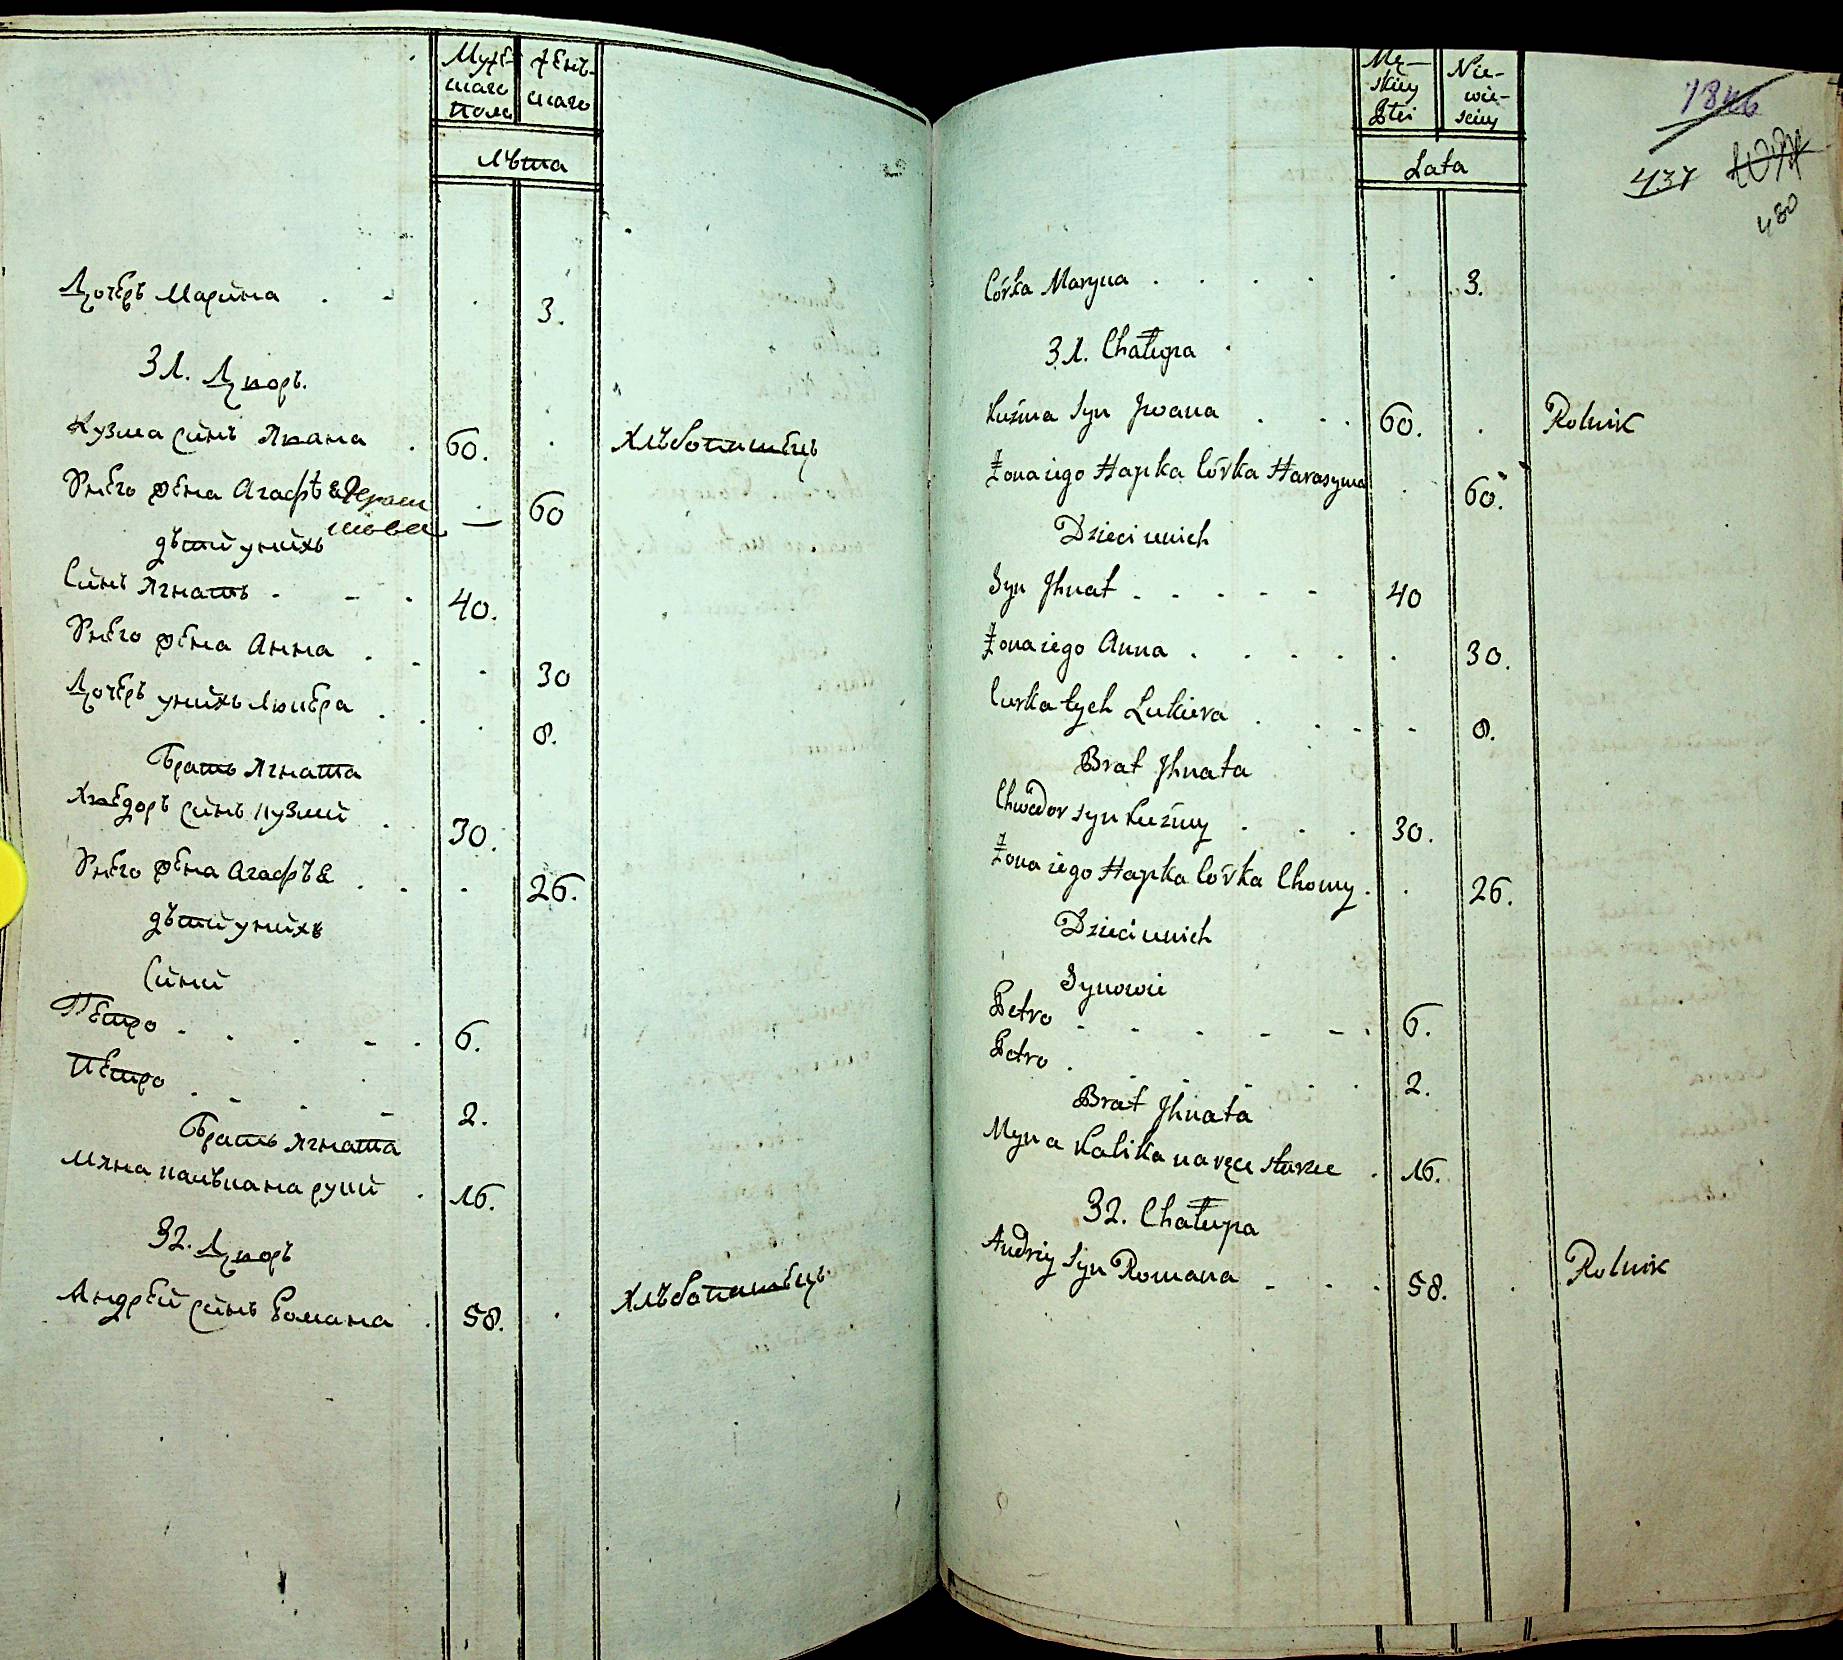 Муже-
скаго
пола
жень-
скаго
лѣта
Дочерь Марина 3.
31. Дворъ.
Кузма синъ Ивана 60. Хлѣбопашецъ
Унего жена Агафѣя Гераси
мова — 60
дѣти унихъ
Синъ Игнатъ 40.
Унего жена Анна 30
Дочерь унихъ Люкера 8.
Братъ Игната
Хведоръ синъ кузми 30.
Унего жена Агафѣя 26.
дѣти унихъ
Сини
Петро 6.
Петро 2.
Братъ Игната
Мина калѣка на руки 16.
32. Дворъ
Андрей синъ Романа 58. Хлѣбопашецъ
Mę-
skiey
Płci
Nie-
wie-
sciey
Lata
1846
437
480
Córka Maryna 3.
31. Chałupa
Kuźma Syn Jwana 60. Rolnik
Żona iego Hapka Córka Harasyma 60.
Dzieci unich
Syn Jhnat 40
Żona iego Anna 30.
Curka tych Lukiera 8.
Brat Jhnata
Chwedor syn Kuźmy 30.
Żona iego Hapka Córka Chomy 26.
Dzieci unich
Synowie
Petro 6.
Petro 2.
Brat Jhnata
Myna Kalika na ręce 16.
32. Chałupa
Andriy Syn Romana 58. Rolnik